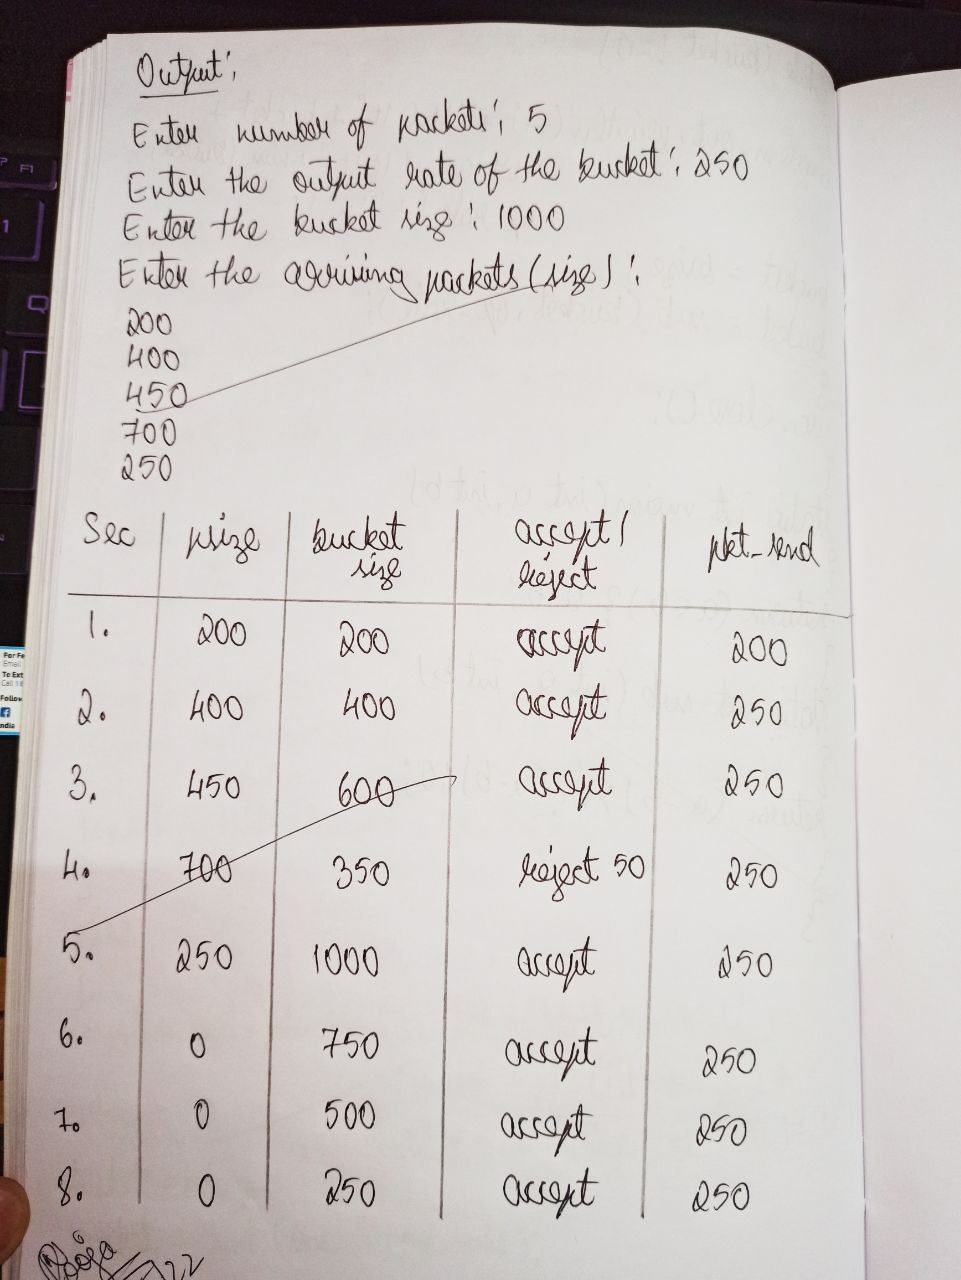 Output:
Enter number of packets: 5
Enter the output rate of the bucket: 250
Enter the bucket size: 1000
Enter the arriving packets (size):
200
400
450
700
250
Sec psize bucket size accept/ reject pkt_send
1. 200 200 accept 200
2. 400 400 accept 250
3. 450 600 accept 250
4. 700 350 reject 50 250
5. 250 1000 accept 250
6. 0 750 accept 250
7. 0 500 accept 250
8. 0 250 accept 250
F1
1
Q
For Fe
Email
To Ext
Call 18
Follow
f
ndia